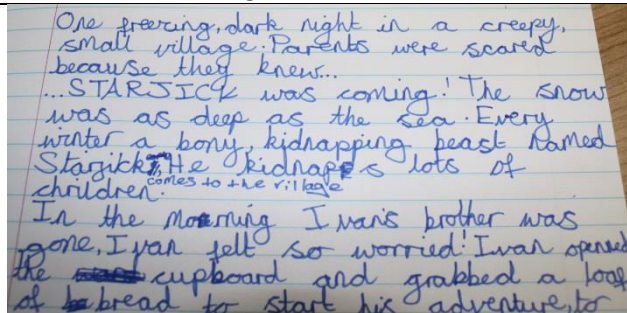 One freezing, dark night in a creepy,
small village. Parents were scared
because they knew...
...STARJICK was coming! The snow
was as deep as the sea. Every
winter a bony, kidnapping beast named
Starjick, He kidnaps lots of
comes to the village
chrildren.
In the morning Ivan's brother was
gone, Ivan felt so worried! Ivan opened
the cupboard and grabbed a loaf
of bread to start his adventure, to